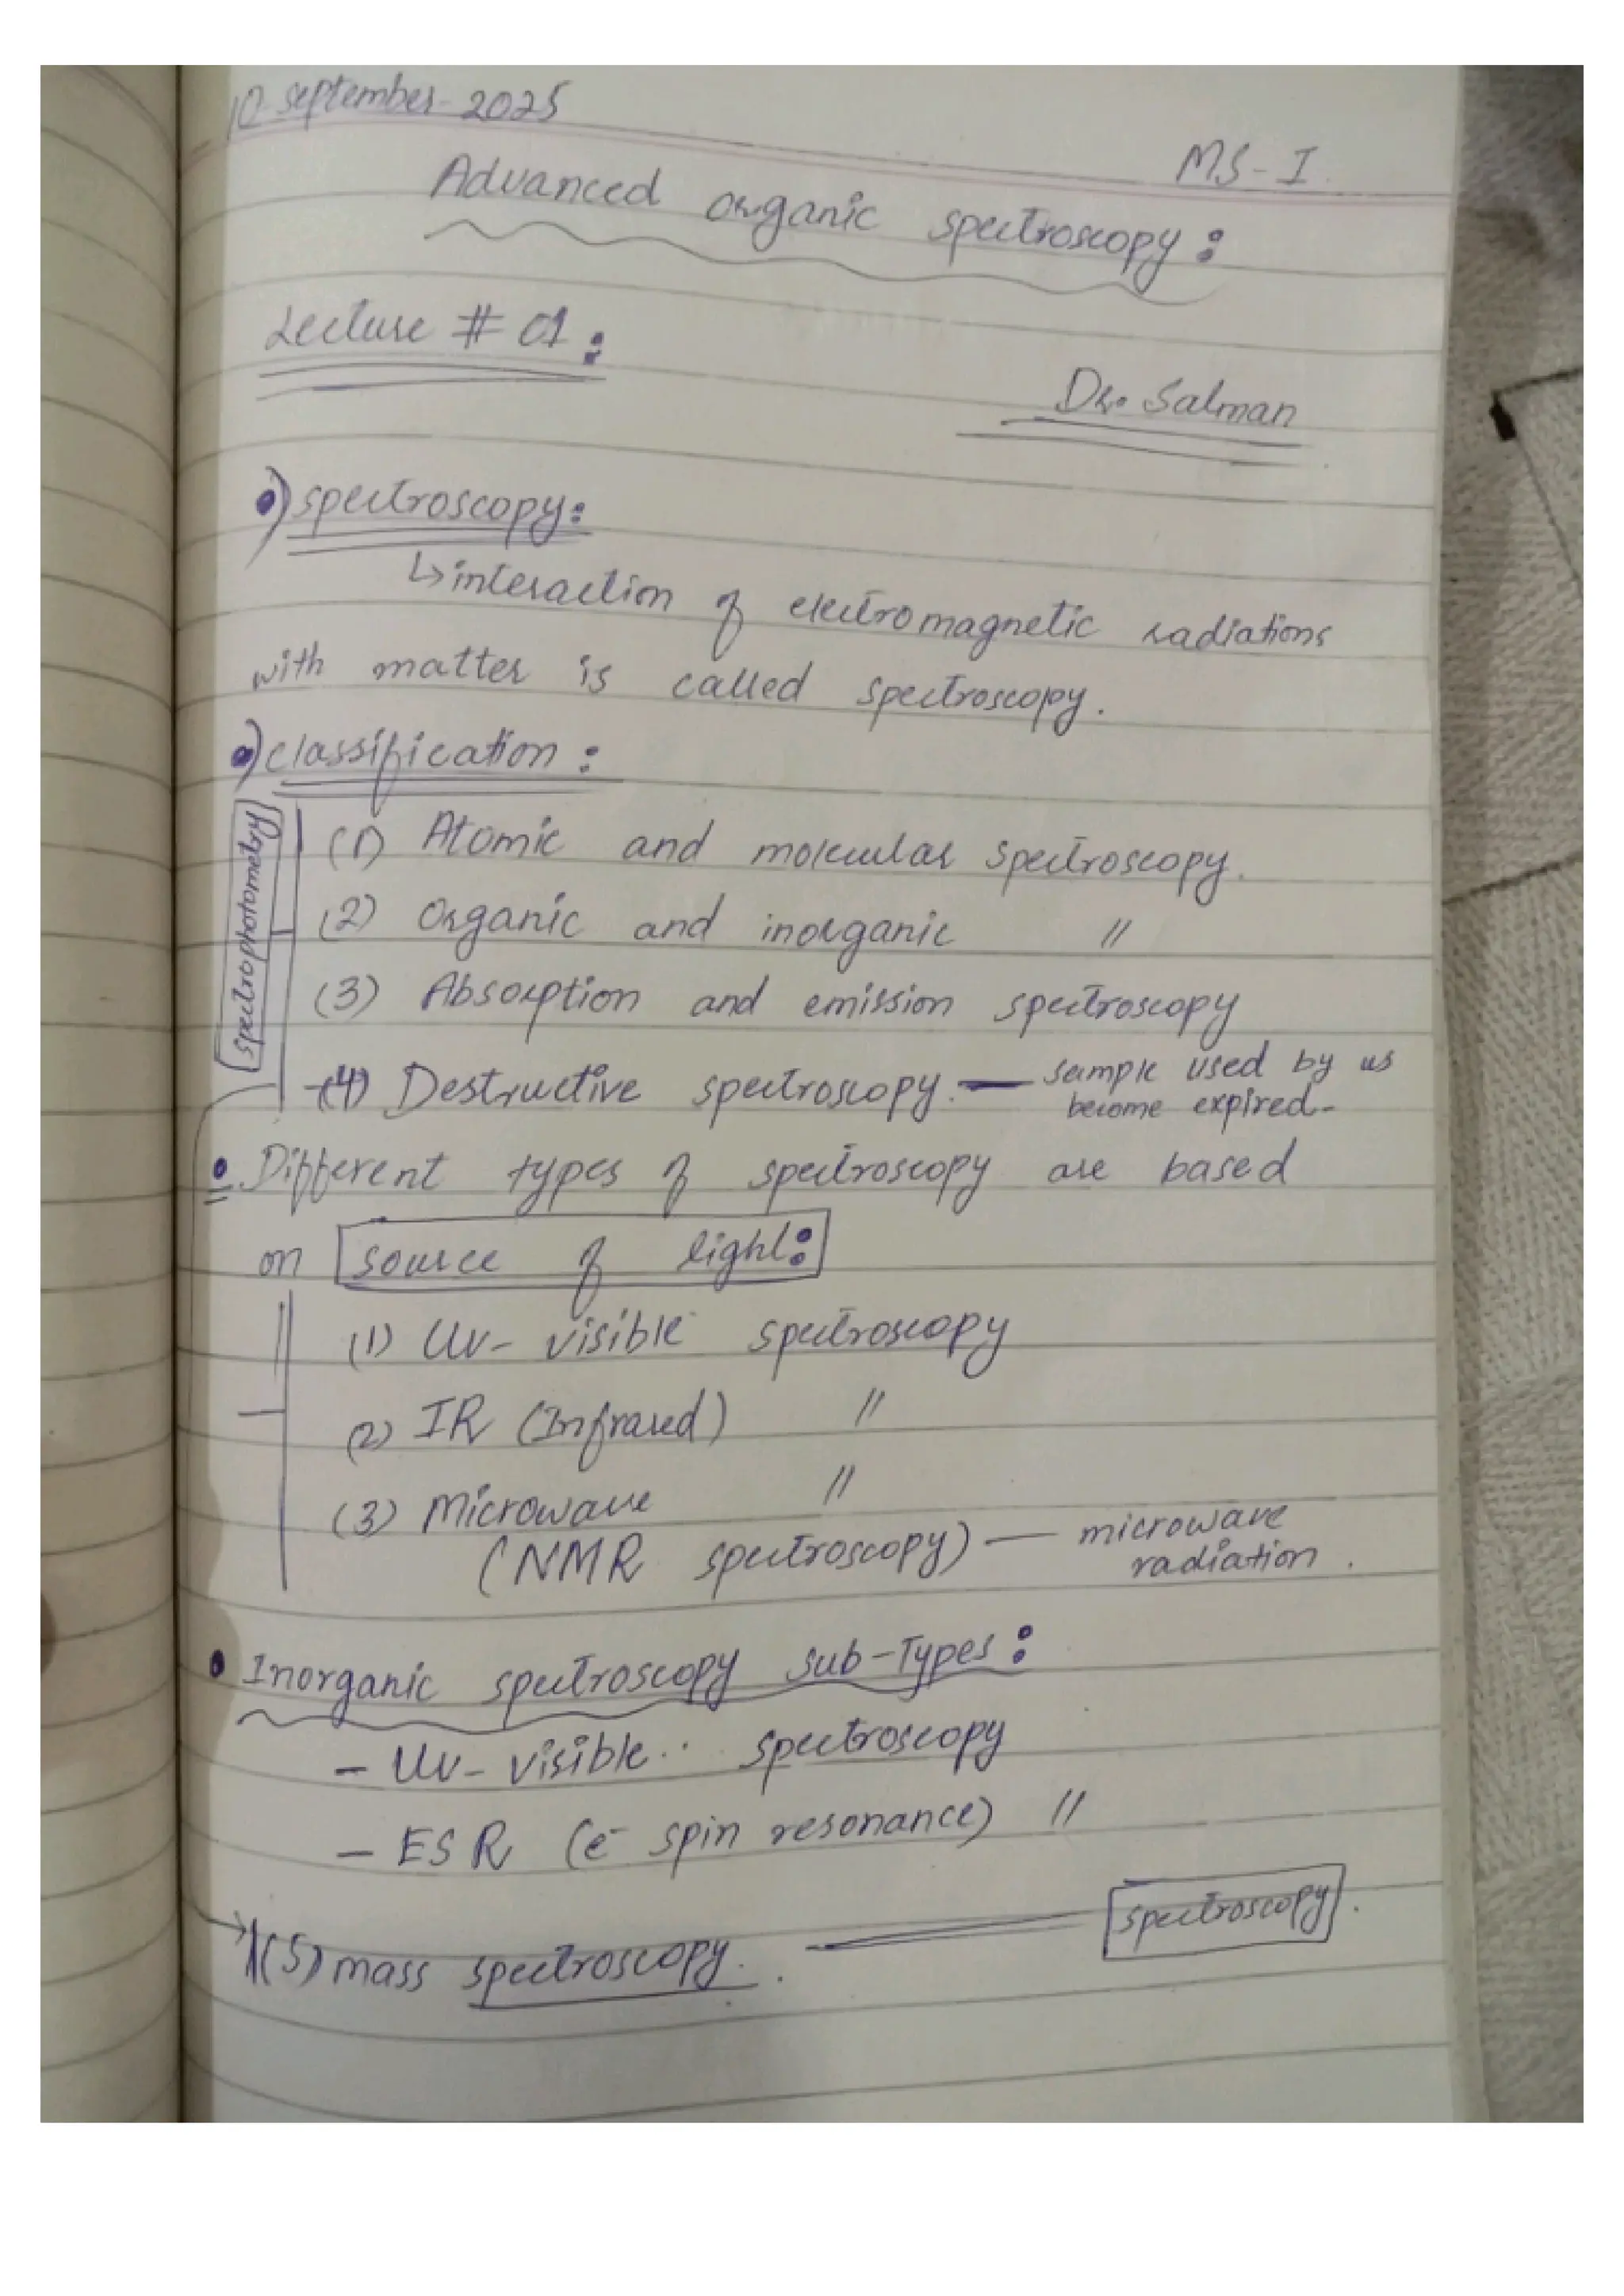 10-september-2025
MS-I
Advanced organic spectroscopy:
Lecture # 01:
Dr. Salman
•) spectroscopy:
↳ interaction of electromagnetic radiations
with matter is called spectroscopy.
•) classification:
spectrophotometry
(1) Atomic and molecular spectroscopy.
(2) Organic and inorganic "
(3) Absorption and emission spectroscopy
(4) Destructive spectroscopy. — sample used by us
become expired-
• Different types of spectroscopy are based
on source of light:
(1) UV- visible spectroscopy
(2) IR (Infrared) "
(3) Microwave "
(NMR spectroscopy) — microwave
radiation.
• Inorganic spectroscopy sub-Types:
- UV- visible spectroscopy
- ESR (e⁻ spin resonance) "
→ (5) mass spectroscopy. — spectroscopy.